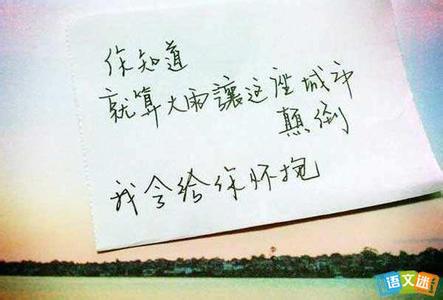 你知道
就算大雨讓这座城市
颠倒
我会给你怀抱
语文迷